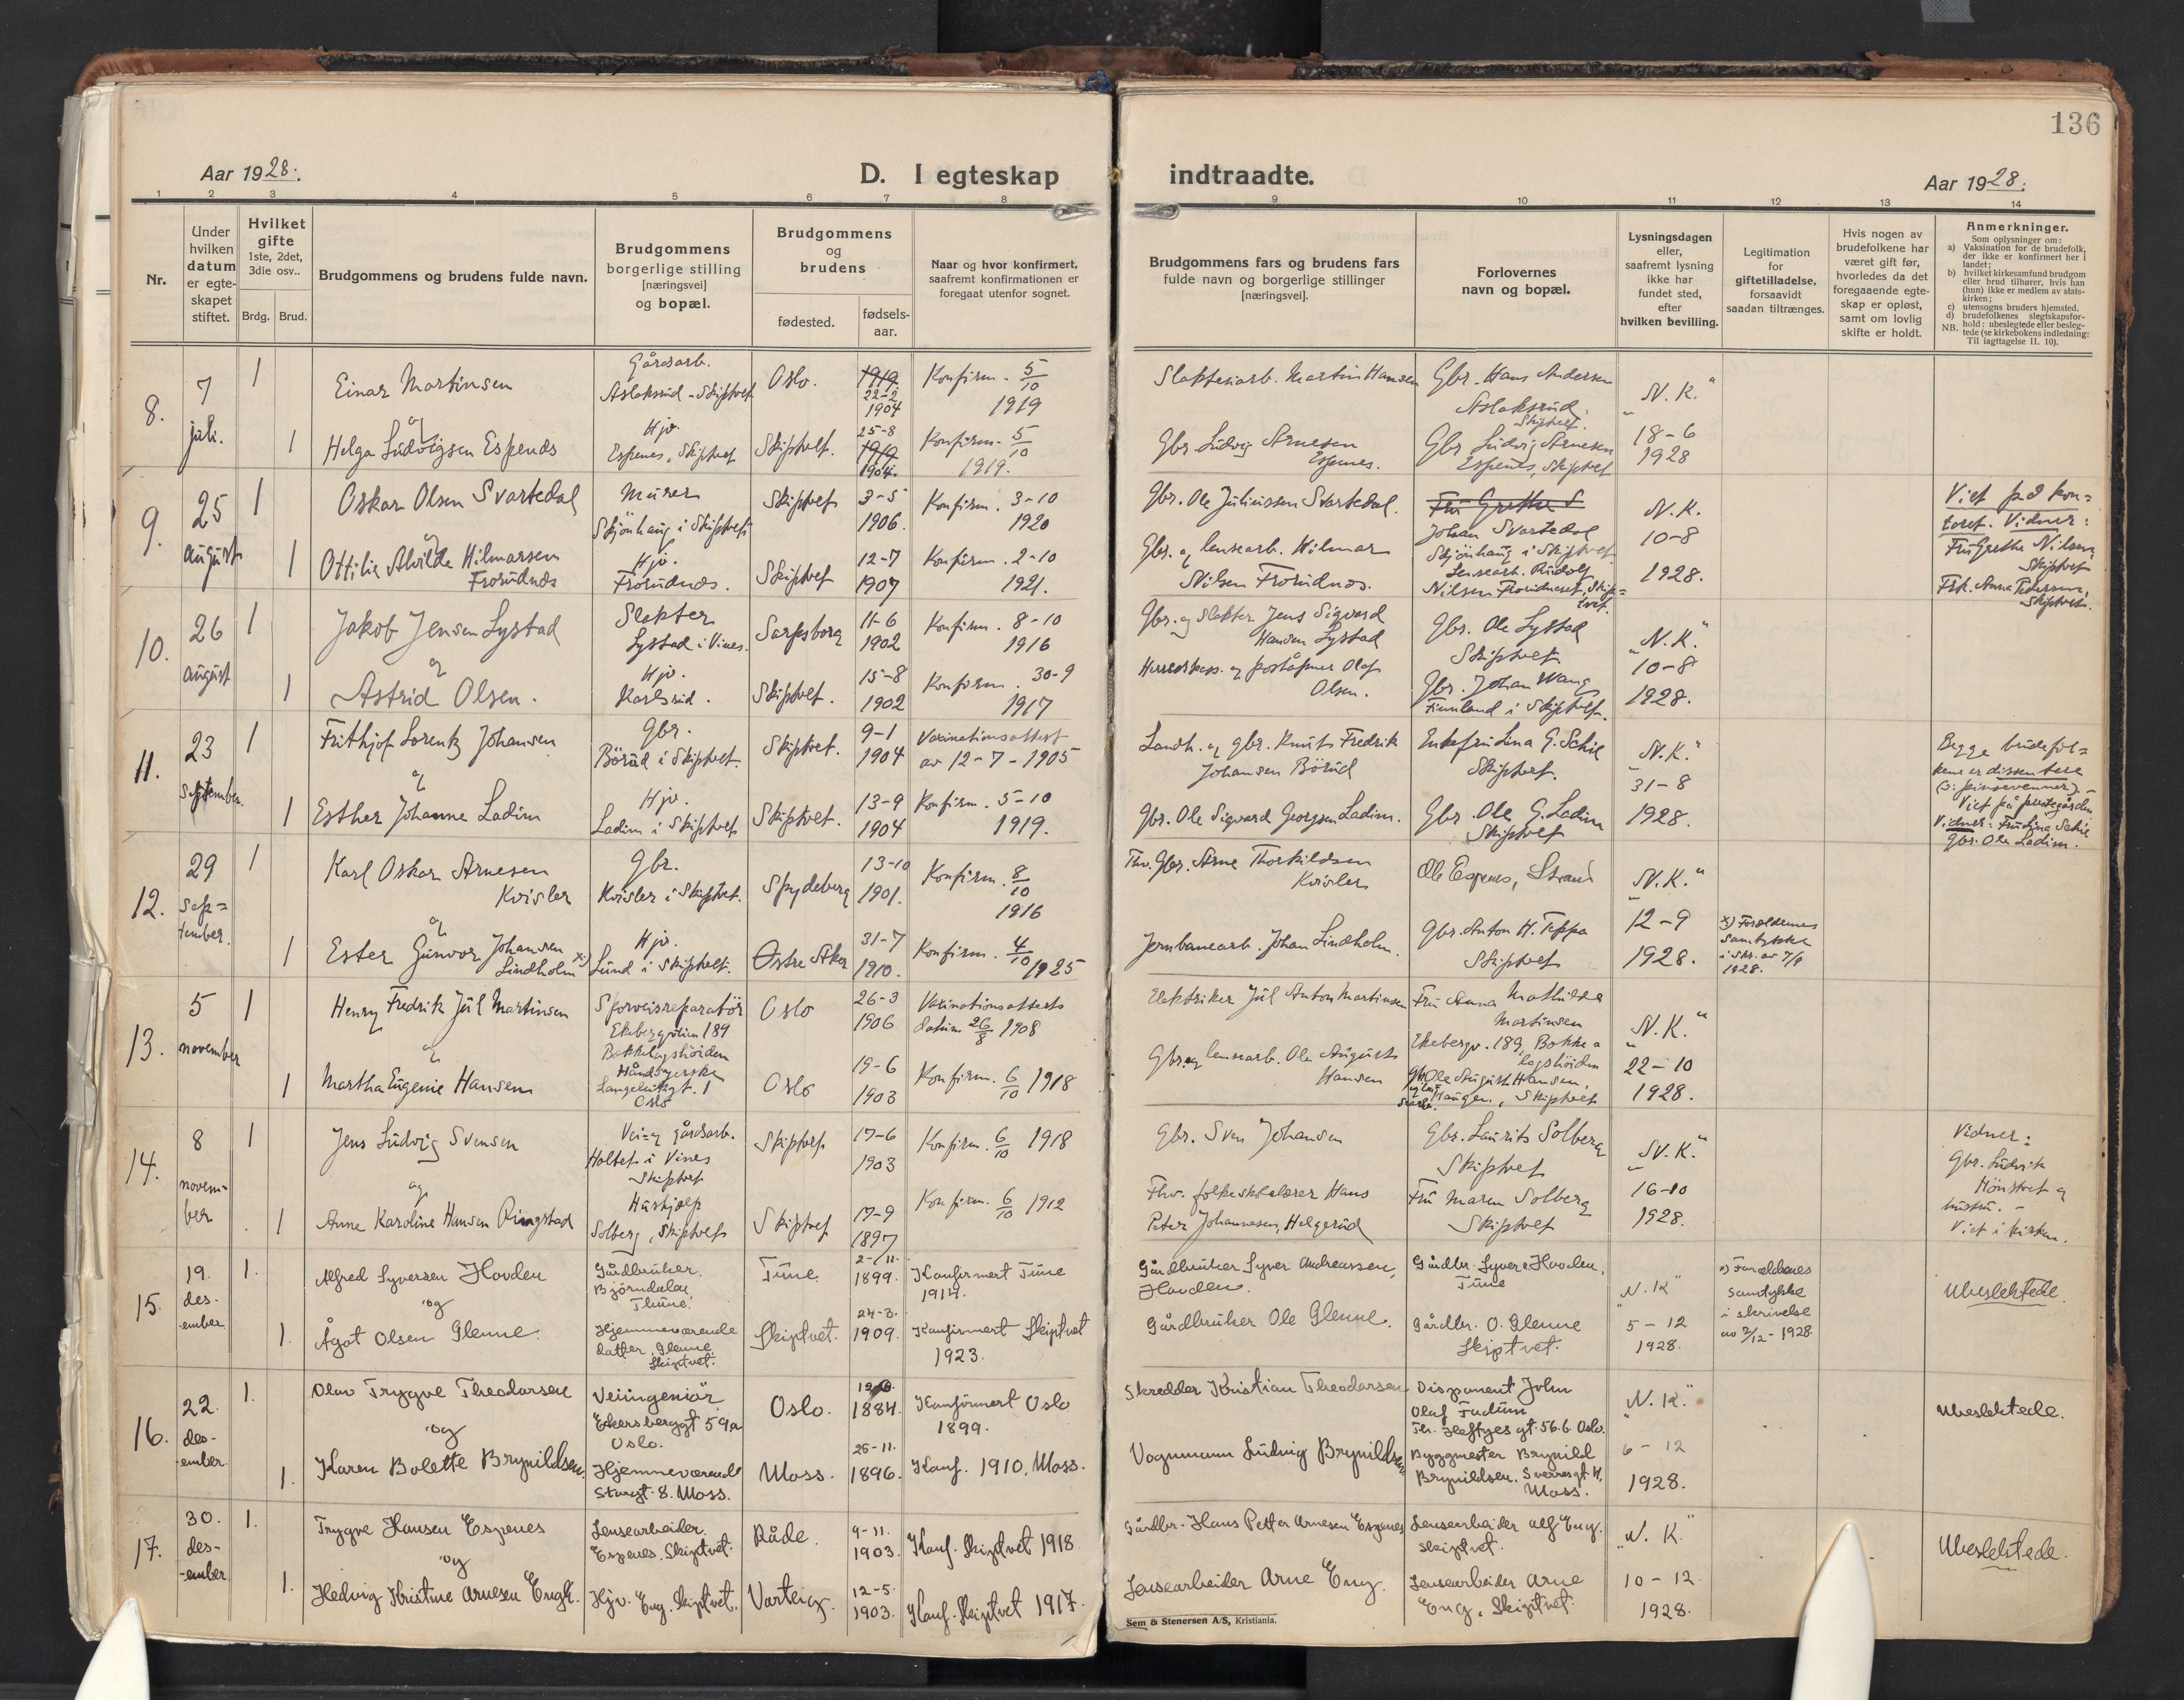 136
Aar 1928.
D. I egteskap indtraadte.
Aar 1928.
1 2 3 4 5 6 7 8 9 10 11 12 13 14
Nr.
Under
hvilken
datum
er egte-
skapet
stiftet.
Hvilket
gifte
1ste, 2det,
3die osv..
Brdg. Brud.
Brudgommens og brudens fulde navn.
Brudgommens
borgerlige stilling
[næringsvei]
og bopæl.
Brudgommens
og
brudens
fødested.
fødsels-
aar.
Naar og hvor konfirmert,
saafremt konfirmationen er
foregaat utenfor sognet.
Brudgommens fars og brudens fars
fulde navn og borgerlige stillinger
[næringsvei].
Forlovernes
navn og bopæl.
Lysningsdagen
eller,
saafremt lysning
ikke har
fundet sted,
efter
hvilken bevilling.
Legitimation
for
giftetilladelse,
forsaavidt
saadan tiltrænges.
Hvis nogen av
brudefolkene har
været gift før,
hvorledes da det
foregaaende egte-
skap er opløst,
samt om lovlig
skifte er holdt.
Anmerkninger.
Som oplysninger om:
a) Vaksination for de brudefolk,
der ikke er konfirmert her i
landet;
b) hvilket kirkesamfund brudgom
eller brud tilhører, hvis han
(hun) ikke er medlem av stats-
kirken;
c) utensogns bruders hjemsted.
d) brudefolkenes slegtskapsfor-
hold: ubeslegtede eller besleg-
NB. tede (se kirkebokens indledning:
Til iagttagelse II. 10).
8.
7
juli.
1
Einar Martinsen
og
1
Helga Ludvigsen Espenes
Gårdsarb.
Aslaksrud - Skiptvet
Hjv.
Espenes, Skiptvet
Oslo.
Skiptvet.
1919.
22-2
1904
25-8
1919
1904.
Konfirm. 5/10
1919
Konfirm. 5/10
1919.
Slakteriarb. Martin Hansen
Gbr. Ludvig Arnesen
Espenes.
Gbr. Hans Andersen
Aslaksrud,
Skiptvet.
Gbr Ludvig Arnesen
Espenes, Skiptvet
"N. K."
18-6
1928
9.
25
august
1
Oskar Olsen Svartedal
og
1
Ottilie Alvilde Hilmarsen
Frorudnes
Murer
Skjönhaug i Skiptvet
Hjv.
Frorudnes.
Skiptvet
Skiptvet
3-5
1906.
12-7
1907
Konfirm. 3-10
1920
Konfirm. 2-10
1921.
Gbr. Ole Juliussen Svartedal.
Gbr. og lensearb. Hilmar
Nilsen Frorudnes.
Fru Grethe S
Johan Svartedal
Skjönhaug i Skiptvet
Lensearb. Rudolf
Nilsen Frorudneset, Skip=
tvet.
N. K.
10-8
1928.
Viet på kon=
toret. Vidner:
Fru Grethe Nilsen,
Skiptvet
Frk. Anna Pedersen,
Skiptvet.
10.
26
august
1
Jakob Jensen Lystad
og
1
Astrid Olsen.
Slakter
Lystad i Vines.
Hjv.
Karlsrud.
Sarpsborg
Skiptvet.
11-6
1902
15-8
1902
Konfirm. 8-10
1916
Konfirm. 30-9
1917
Gbr. og slakter Jens Sigvard
Hansen Lystad
Herredskass. og poståpner Olaf
Olsen.
Gbr. Ole Lystad
Skiptvet
Gbr. Johan Wang
Finnland i Skiptvet.
"N. K."
10-8
1928.
11.
23
september.
1
Frithjof Lorentz Johansen
og
1
Esther Johanne Ladim
Gbr.
Börud i Skiptvet.
Hjv.
Ladim i Skiptvet
Skiptvet.
Skiptvet.
9-1
1904
13-9
1904
Vaxinationsattest
av 12-7-1905
Konfirm. 5-10
1919.
Landh. og gbr. Knut Fredrik
Johansen Börud
Gbr. Ole Sigvard Georgsen Ladim.
Enkefru Lina G. Schie
Skiptvet.
Gbr. Ole G. Ladim
Skiptvet
"N. K."
31-8
1928.
Begge brudefol=
kene er dissentere
(ɔ: pinsevenner). -
Viet på prestegården
Vidner: Fru Lina Schie
Gbr. Ole Ladim.
12.
29
sep=
tember.
1
Karl Oskar Arnesen
Kvisler
og
1
Ester Gunvor Johansen
Lindholm x)
Gbr.
Kvisler i Skiptvet.
Hjv.
Lund i Skiptvet.
Spydeberg
Østre Aker
13-10
1901.
31-7
1910.
Konfirm. 8/10
1916
Konfirm. 4/10 1925
Fhv. Gbr. Arne Thorkildsen
Kvisler
Jernbanearb. Johan Lindholm.
Ole Espenes, Strand
Gbr. Anton H. Teppa
Skiptvet
"N. K."
12-9
1928.
x) Foreldrenes
samtykke
i skr. av 7/9
1928.
13.
5
november
1
Henry Fredrik Jul Martinsen
og
1
Martha Eugenie Hansen
Sporveisreparatör
Ekebergveien 189
Bekkelagshöiden
Håndsyerske
gt. 1
Oslo
Oslo
Oslo
26-3
1906
19-6
1903
Vaxinationsattests
datum 26/8 1908
Konfirm. 6/10 1918
Elektriker Jul Anton Martinsen
Gbr. og lensearb. Ole August
Hansen
Fru Anna Mathilde
Martinsen
Ekebergv. 189, Bekke=
lagshöiden
Gbr. Ole August Hansen,
Haugen, Skiptvet
"N. K."
22-10
1928.
14.
8
novem-
ber
1
Jens Ludvig Svensen
og
1
Anne Karoline Hansen Ringstad
Vei- og gårdsarb.
Holtet i Vines
Skiptvet
Hushjelp
Solberg, Skiptvet
Skiptvet
Skiptvet
17-6
1903
17-9
1897
Konfirm. 6/10 1918
Konfirm. 6/10 1912
Gbr. Sven Johansen
Fhv. folkeskolelærer Hans
Peter Johannesen, Helgerud
Gbr. Laurits Solberg
Skiptvet
Fru Maren Solberg
Skiptvet
"N. K."
16-10
1928.
Vidner:
Gbr. Ludvik
Mönstvet og
hustru. -
Viet i kirken.
15.
19.
des-
ember
1.
Alfred Syversen Hovden
og
1.
Ågot Olsen Glenne.
Gårdbruker.
Björndalen,
Thune.
Hjemmeværende
datter, Glenne,
Skiptvet.
Tune.
Skiptvet.
2-11.
1899.
24-3.
1909.
Konfirmert Tune
1914.
Konfirmert Skiptvet
1923.
Gårdbruker Syver Andreassen,
Hovden.
Gårdbruker Ole Glenne.
Gårdbr. Syver Hovden,
Tune
Gårdbr. O. Glenne
Skiptvet.
"N. K"
5-12
1928.
x) Foreldrenes
samtykke
i skrivelse
av 2/12-1928.
Ubeslektede.
16.
22.
des-
ember
1.
Olav Trygve Theodorsen
og
1.
Karen Bolette Brynildsen.
Veiingeniör
Eckersbergsgt 59a
Oslo.
Hjemmeværende
Storgt. 8. Moss.
Oslo.
Moss.
1884.
25-11.
1896.
Konfirmert Oslo
1899.
Konf. 1910, Moss.
Skredder Kristian Theodorsen
Vognmann Ludvig Brynildsen
Disponent John
Olaf Fudum
Th. Heftyes gt. 56.b. Oslo.
Byggmester Brynild
Brynildsen. Sverresgt. 4,
Moss.
"N. K."
6-12
1928.
Ubeslektede.
17.
30.
des-
ember
1.
Trygve Hansen Espenes
og
1.
Hedvig Kristine Arnesen Eng.
Lensearbeider.
Espenes, Skiptvet.
Hjv. Eng, Skiptvet.
Råde.
Varteig.
9-11.
1903.
12-5.
1903.
Konf. Skiptvet 1918
Konf. Skiptvet 1917.
Gårdbr. Hans Petter Arnesen Espenes
Lensearbeider Arne Eng.
Lensearbeider Alf Eng.
Skiptvet.
Lensearbeider Arne
Eng, Skiptvet.
"N. K."
10-12.
1928.
Ubeslektede.
Sem & Stenersen A/S, Kristiania.